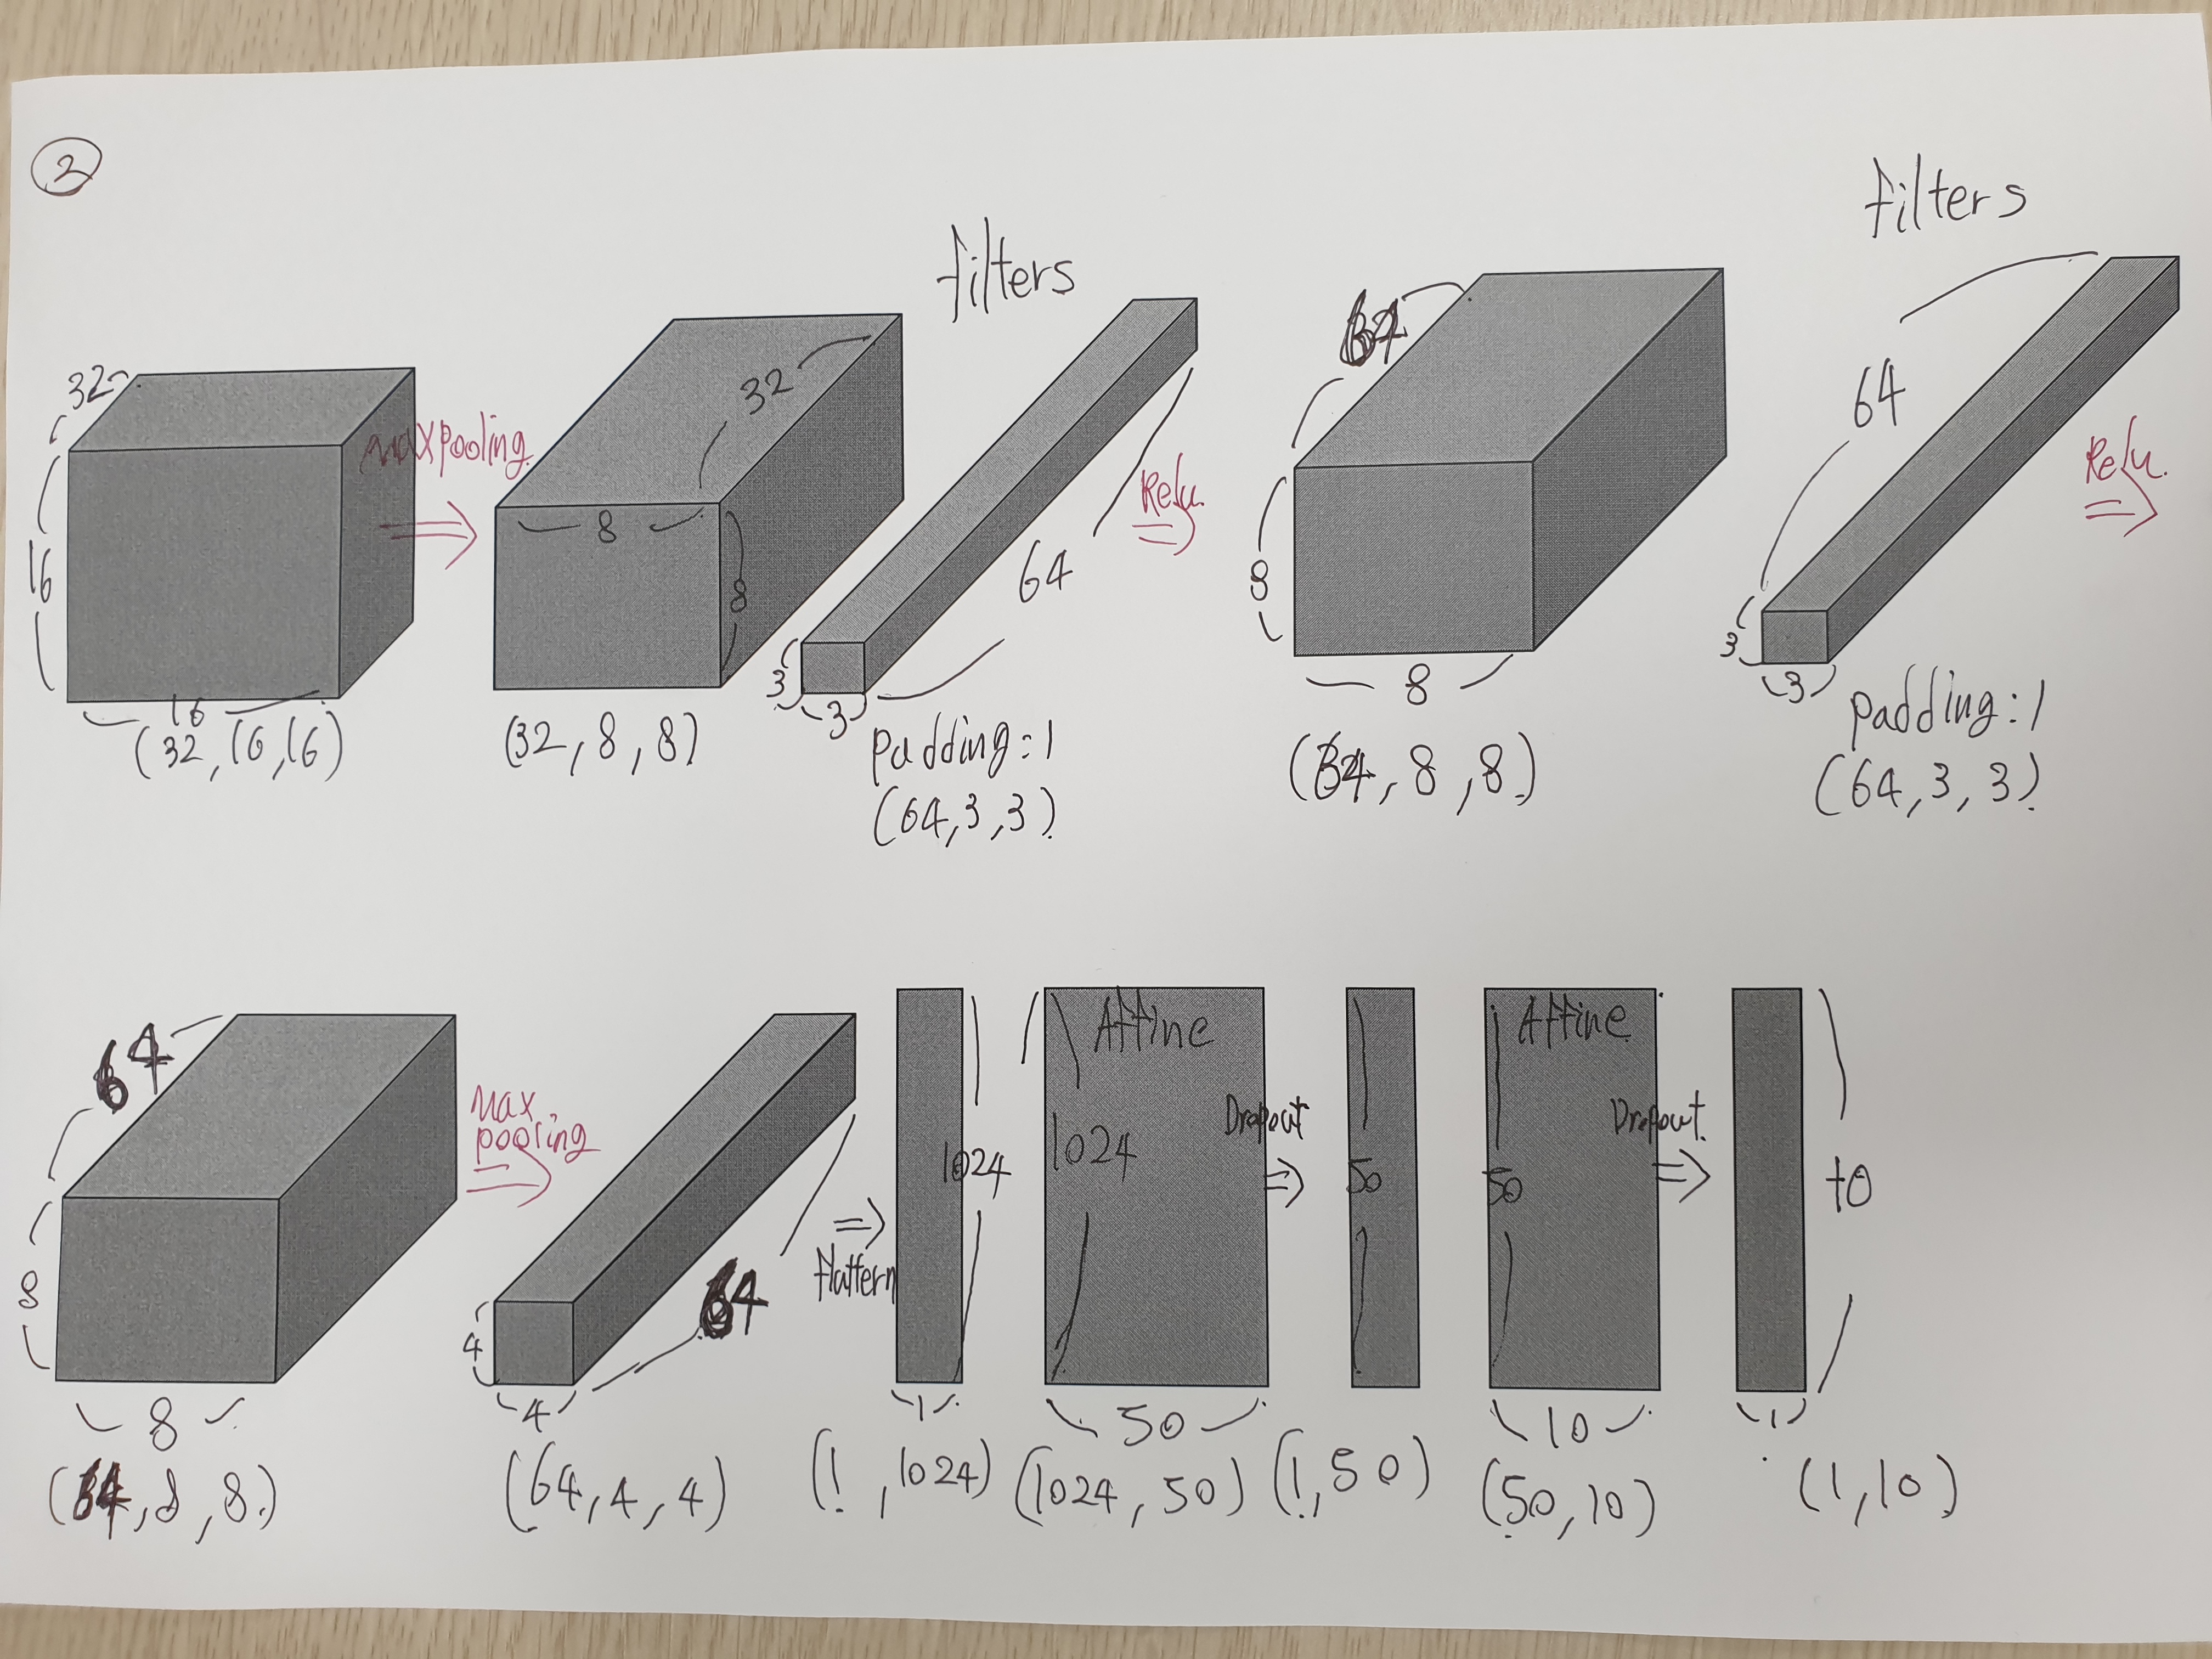 2
filters
filters
32
16
16
(32,16,16)
maxpooling
32
8
8
(32,8,8)
64
3
3
padding:1
(64,3,3)
Relu
64
8
8
(64,8,8)
64
3
3
padding:1
(64,3,3)
Relu
64
8
8
(64,8,8)
Max
pooling
64
4
4
(64,4,4)
flattern
1024
1
(1,1024)
Affine
1024
50
(1024,50)
Dropout
50
(1,50)
Affine
50
10
(50,10)
Dropout
10
1
(1,10)